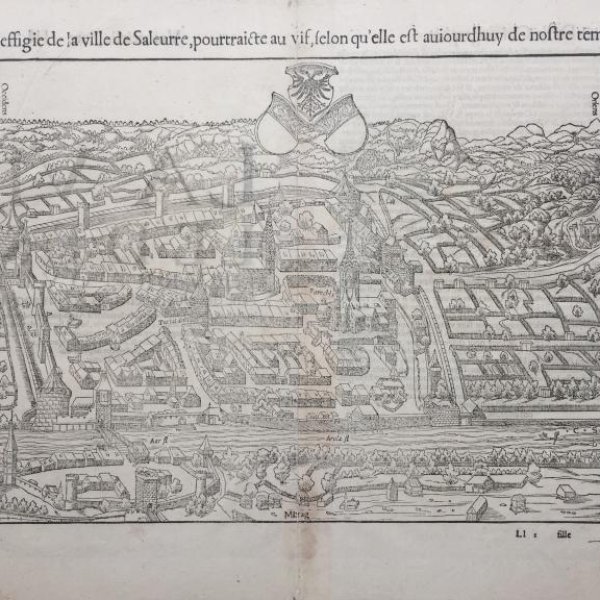 effigie de la ville de Saleurre, pourtraicte au vif, ſelon qu'elle eſt auiourdhuy de noſtre tem
Occidens
Oriens
Aer fl
Arula fl
Mittag
Ll 2 ſille